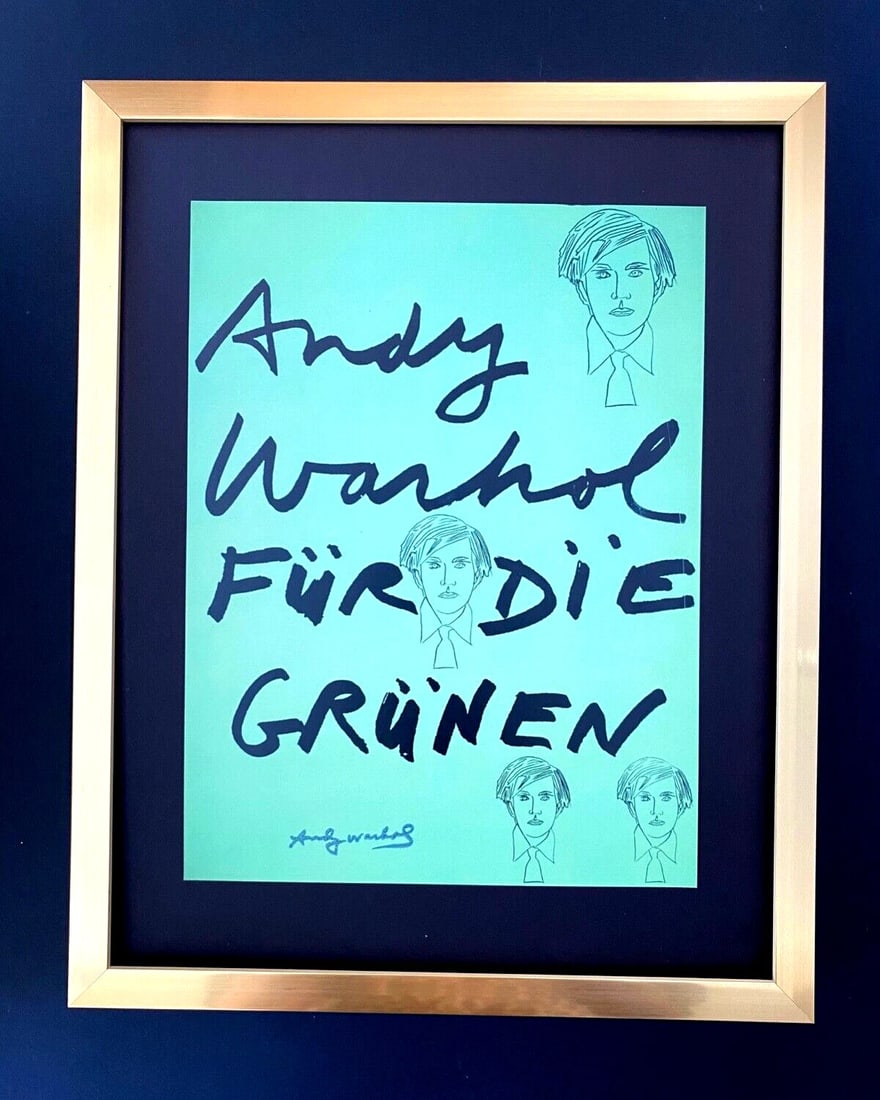 Andy
Warhol
FÜR DIE
GRÜNEN
Andy Warhol